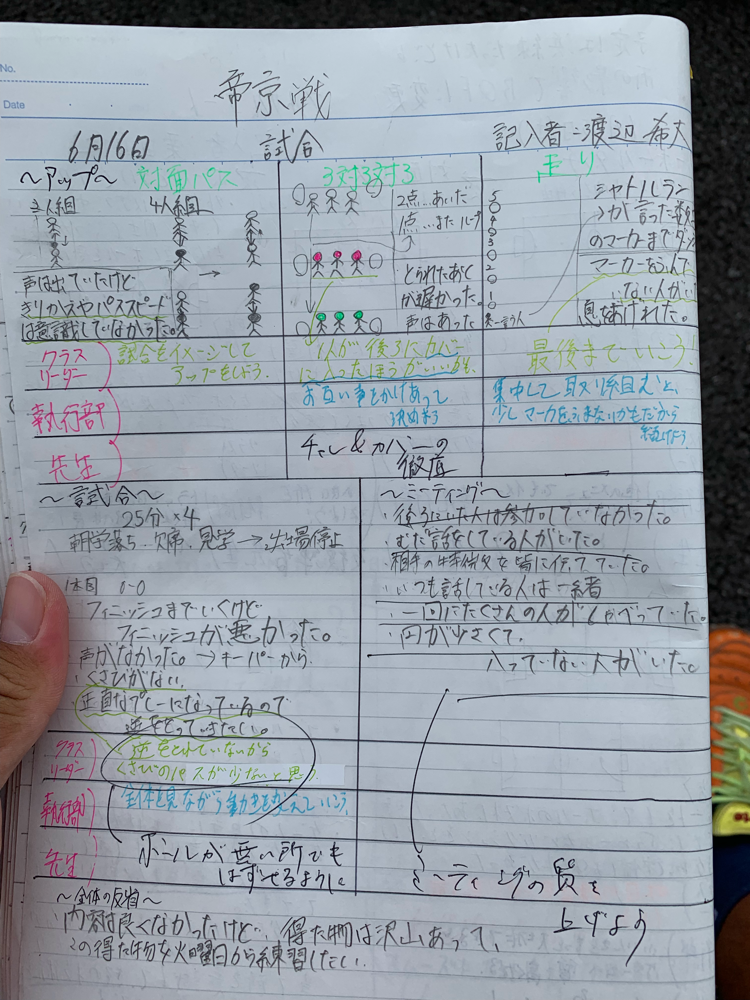 No.
Date
帝京戦
6月16日 試合 記入者:渡辺 希大
〜アップ〜 対面パス
3人組 4人組
声は出ていたけど
きりかえやパススピード
は意識していなかった。
3対3対3
2点…あいだ
1点…またループ
とられたあと
が遅かった。
声はあった
走り
シャトルラン
→が言った数
のマーカーまでダッシュ
マーカーをふんで
いない人がいた
息をあげれた。
クラス
リーダー
試合をイメージして
アップをしよう。
1人が後ろにカバー
に入ったほうがいいかも。
最後までいこう!
執行部
お互い声をかけあって
決めよう
集中して取り組むと、
少しマーカをふまないかもだから
続けよう
先生
チャレ&カバーの
徹底
〜試合〜
25分×4
朝学落ち、欠席、見学→出場停止
1本目 0-0
フィニッシュまでいくけど
フィニッシュが悪かった。
声がなかった。→キーパーから
・くさびがない。
正直なプレーになっているので
逆をとっていきたい。
クラス
リーダー
逆をとれていないから
くさびのパスが少ないと思う
執行部
全体を見ながら動きをかえていこう。
先生
ボールが無い所でも
はずせるように
〜ミーティング〜
・後ろにいた人は参加していなかった。
・むだ話をしている人がいた。
・相手の特徴を皆に伝えていた。
・いつも話している人は一緒
・一回にたくさんの人がしゃべっていた。
・円が少さくて、
入っていない人がいた。
ミーティングの質を
上げよう
〜全体の反省〜
内容は良くなかったけど、得た物は沢山あって、
この得た物を火曜日から練習したい。